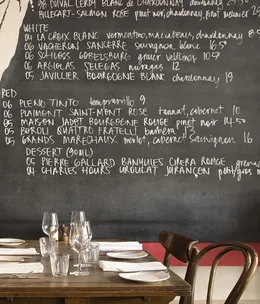 06 DUVAL LEROY BLANC de CHARDONNAY
BILLECART-SALMON ROSÉ pinot noir, chardonnay, pinot meunier
WHITE
04 LA CROIX BLANC vermentino, chardonnay
05 VACHERON SANCERRE sauvignon blanc 16.5
06 SCHLOSS GOBELSBURG gruner veltliner 10.5
06 ARGIOLAS SELEGAS 10
05 JAVILLIER BOURGOGNE BLANC chardonnay 19
RED
06 PLENO TINTO tempranillo 9
06 PLAIMONT SAINT-MONT ROSÉ tannat, cabernet 10
05 MAISON JADOT BOURGOGNE ROUGE pinot noir 14.50
05 BOROLI QUATTRO FRATELLI barbera 13
05 GRANDS MARECHAUX merlot, cabernet Sauvignon 16
DESSERT (90ml)
05 PIERRE GALLARD BANYULES ROUGE
04 CHARLES HOURS UROULAT JURANÇON